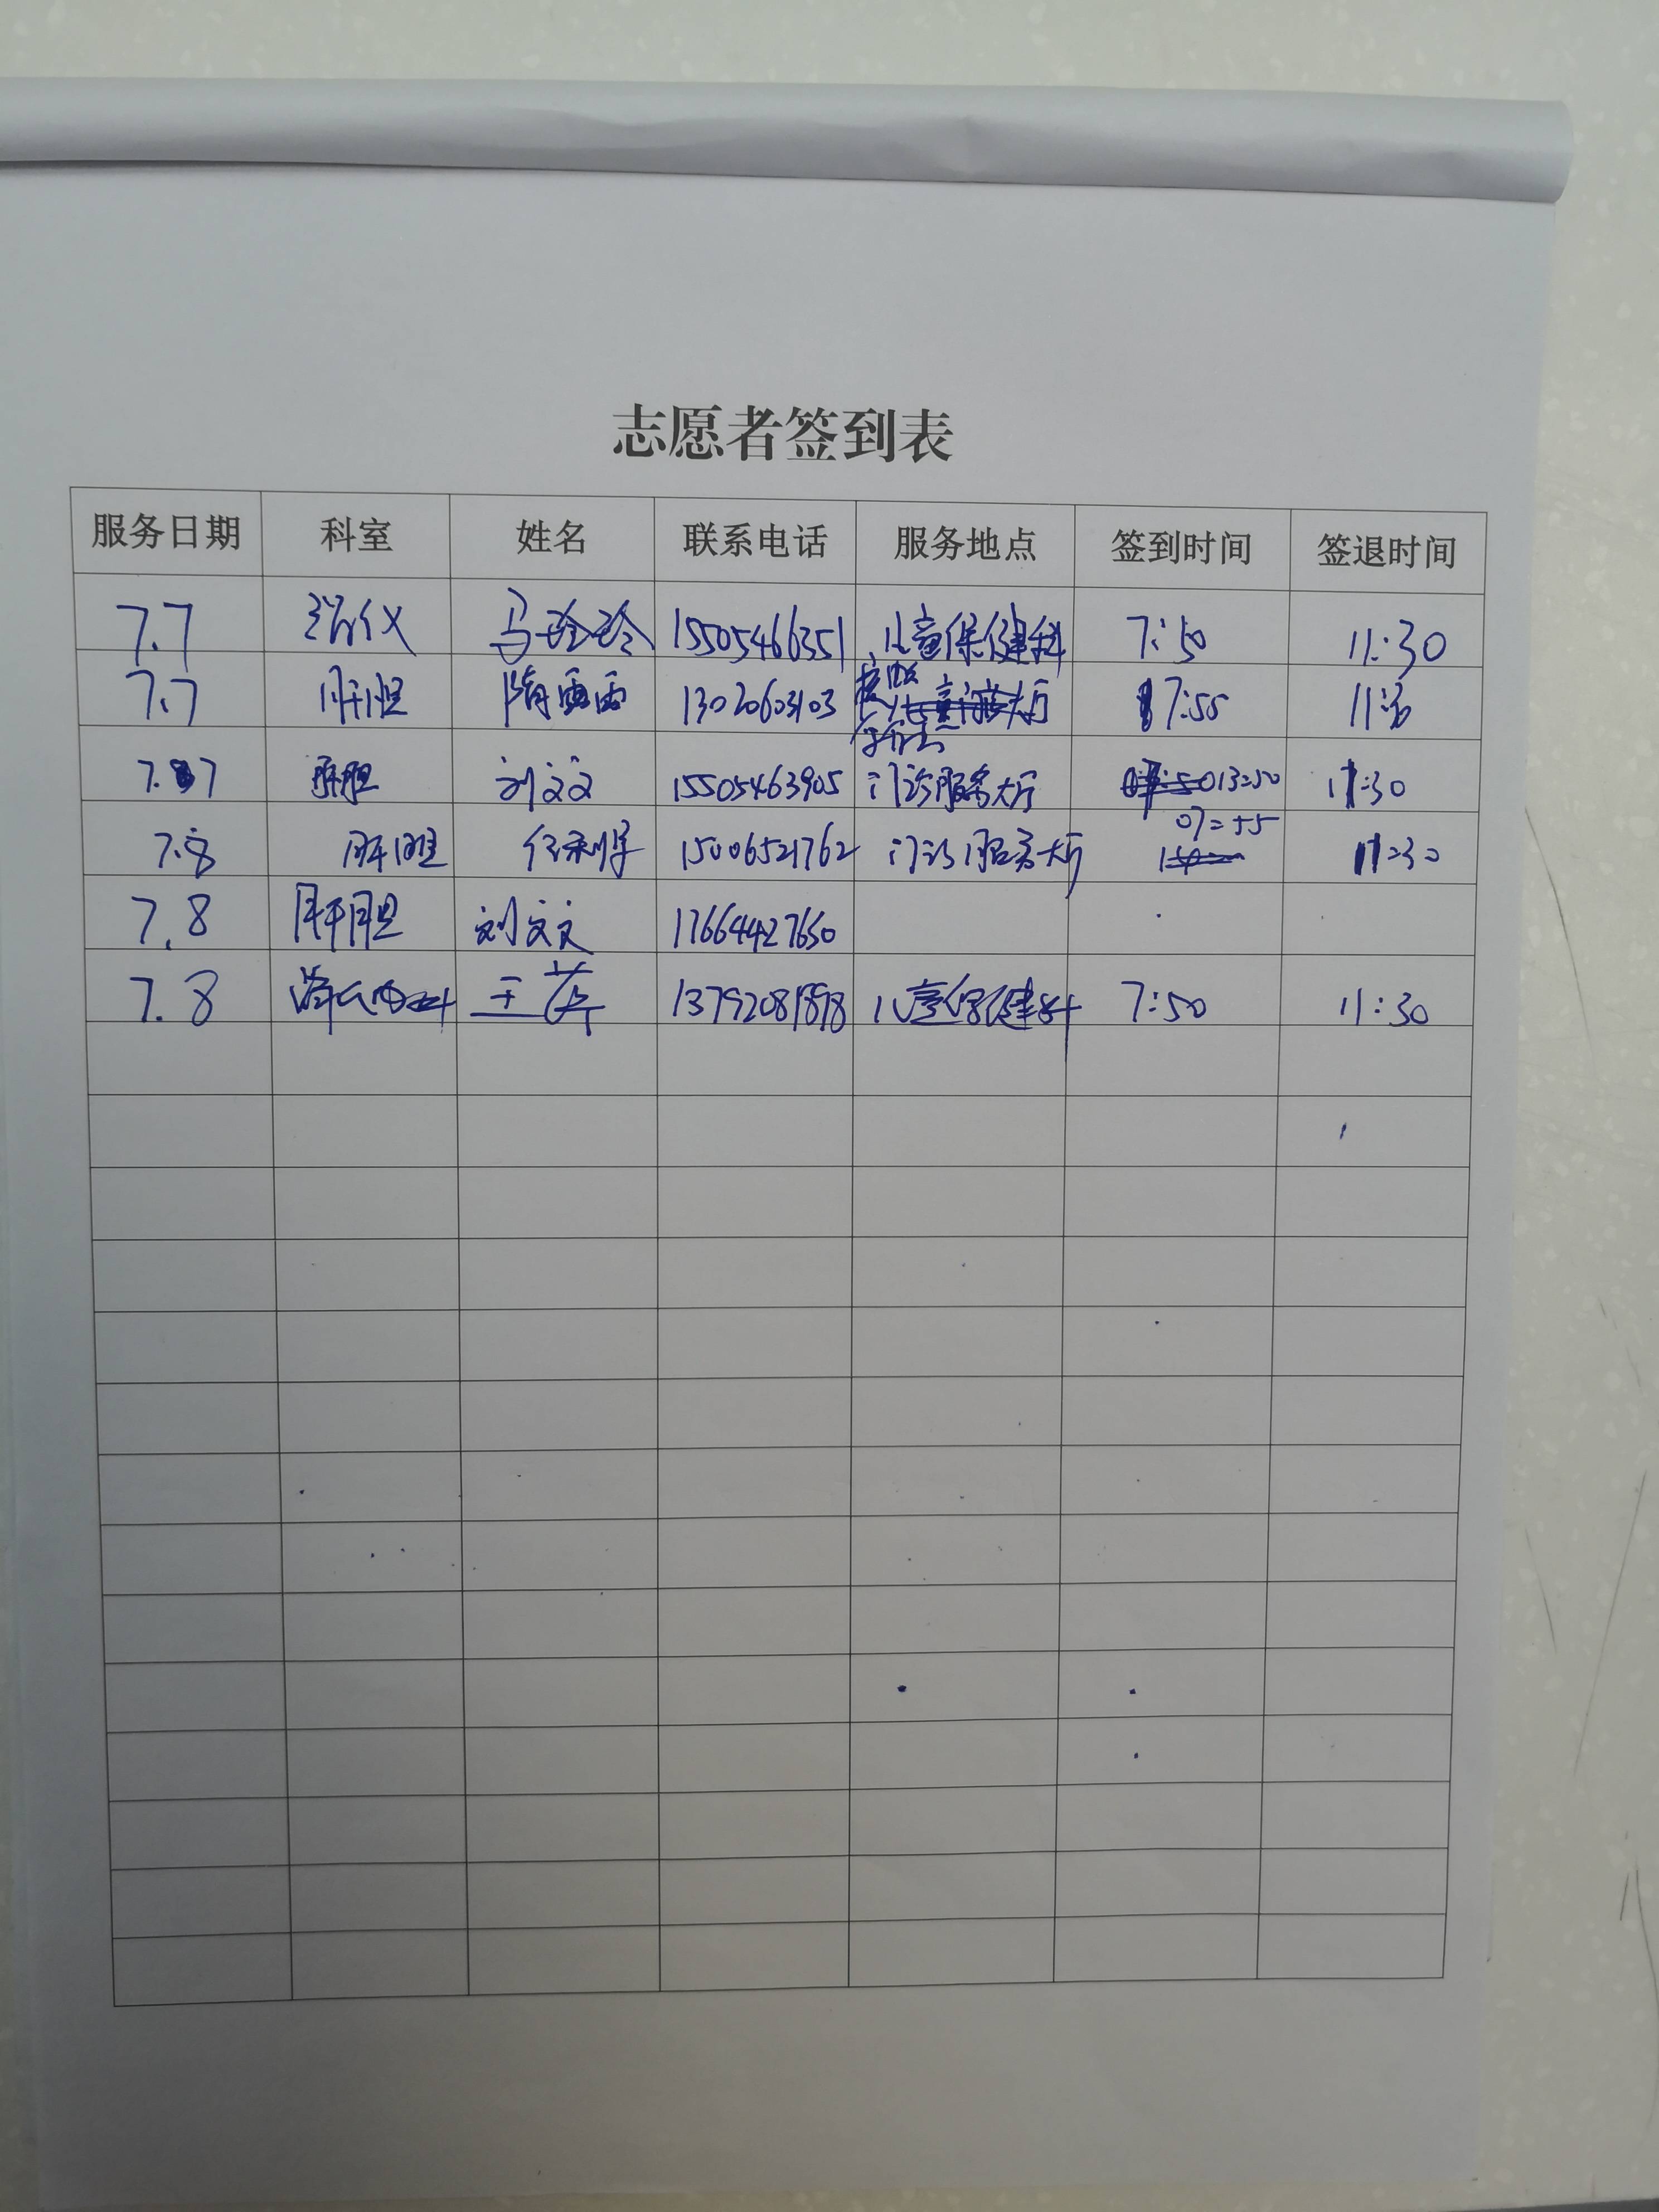 志愿者签到表
服务日期 科室 姓名 联系电话 服务地点 签到时间 签退时间
7.7 马玲玲 15505466351 儿童保健科 7:50 11:30
7.7 肝胆 隋雷雷 13020603103 大厅 7:55
7.7 肝胆 刘文文 15505463905 门诊服务大厅 013:50 11:30
7.8 肝胆 15006521762 门诊服务大厅 07:55 11:30
7.8 肝胆 刘文文 17664427650
7.8 王萍 13792081898 儿童保健科 7:50 11:30